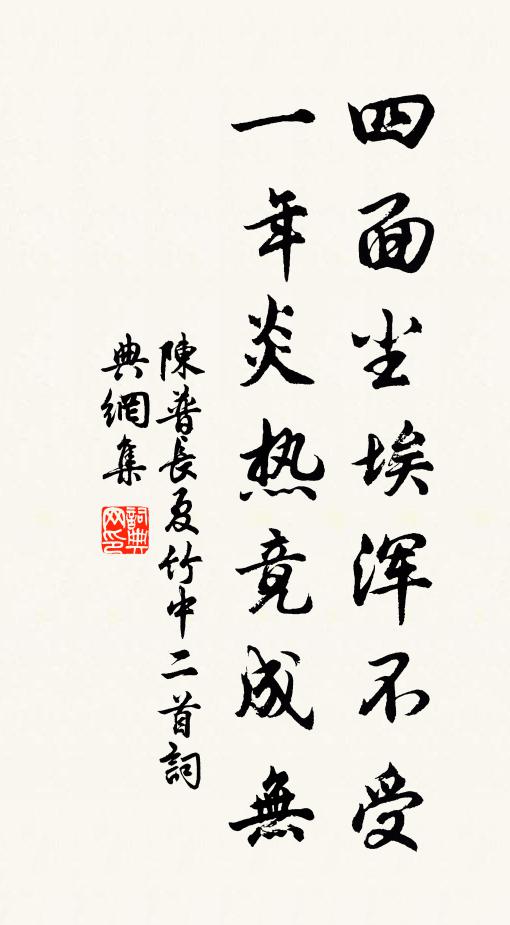 四面尘埃浑不受
一年炎热竟成無
陳普長夏竹中二首詞
典網集
詞典网印